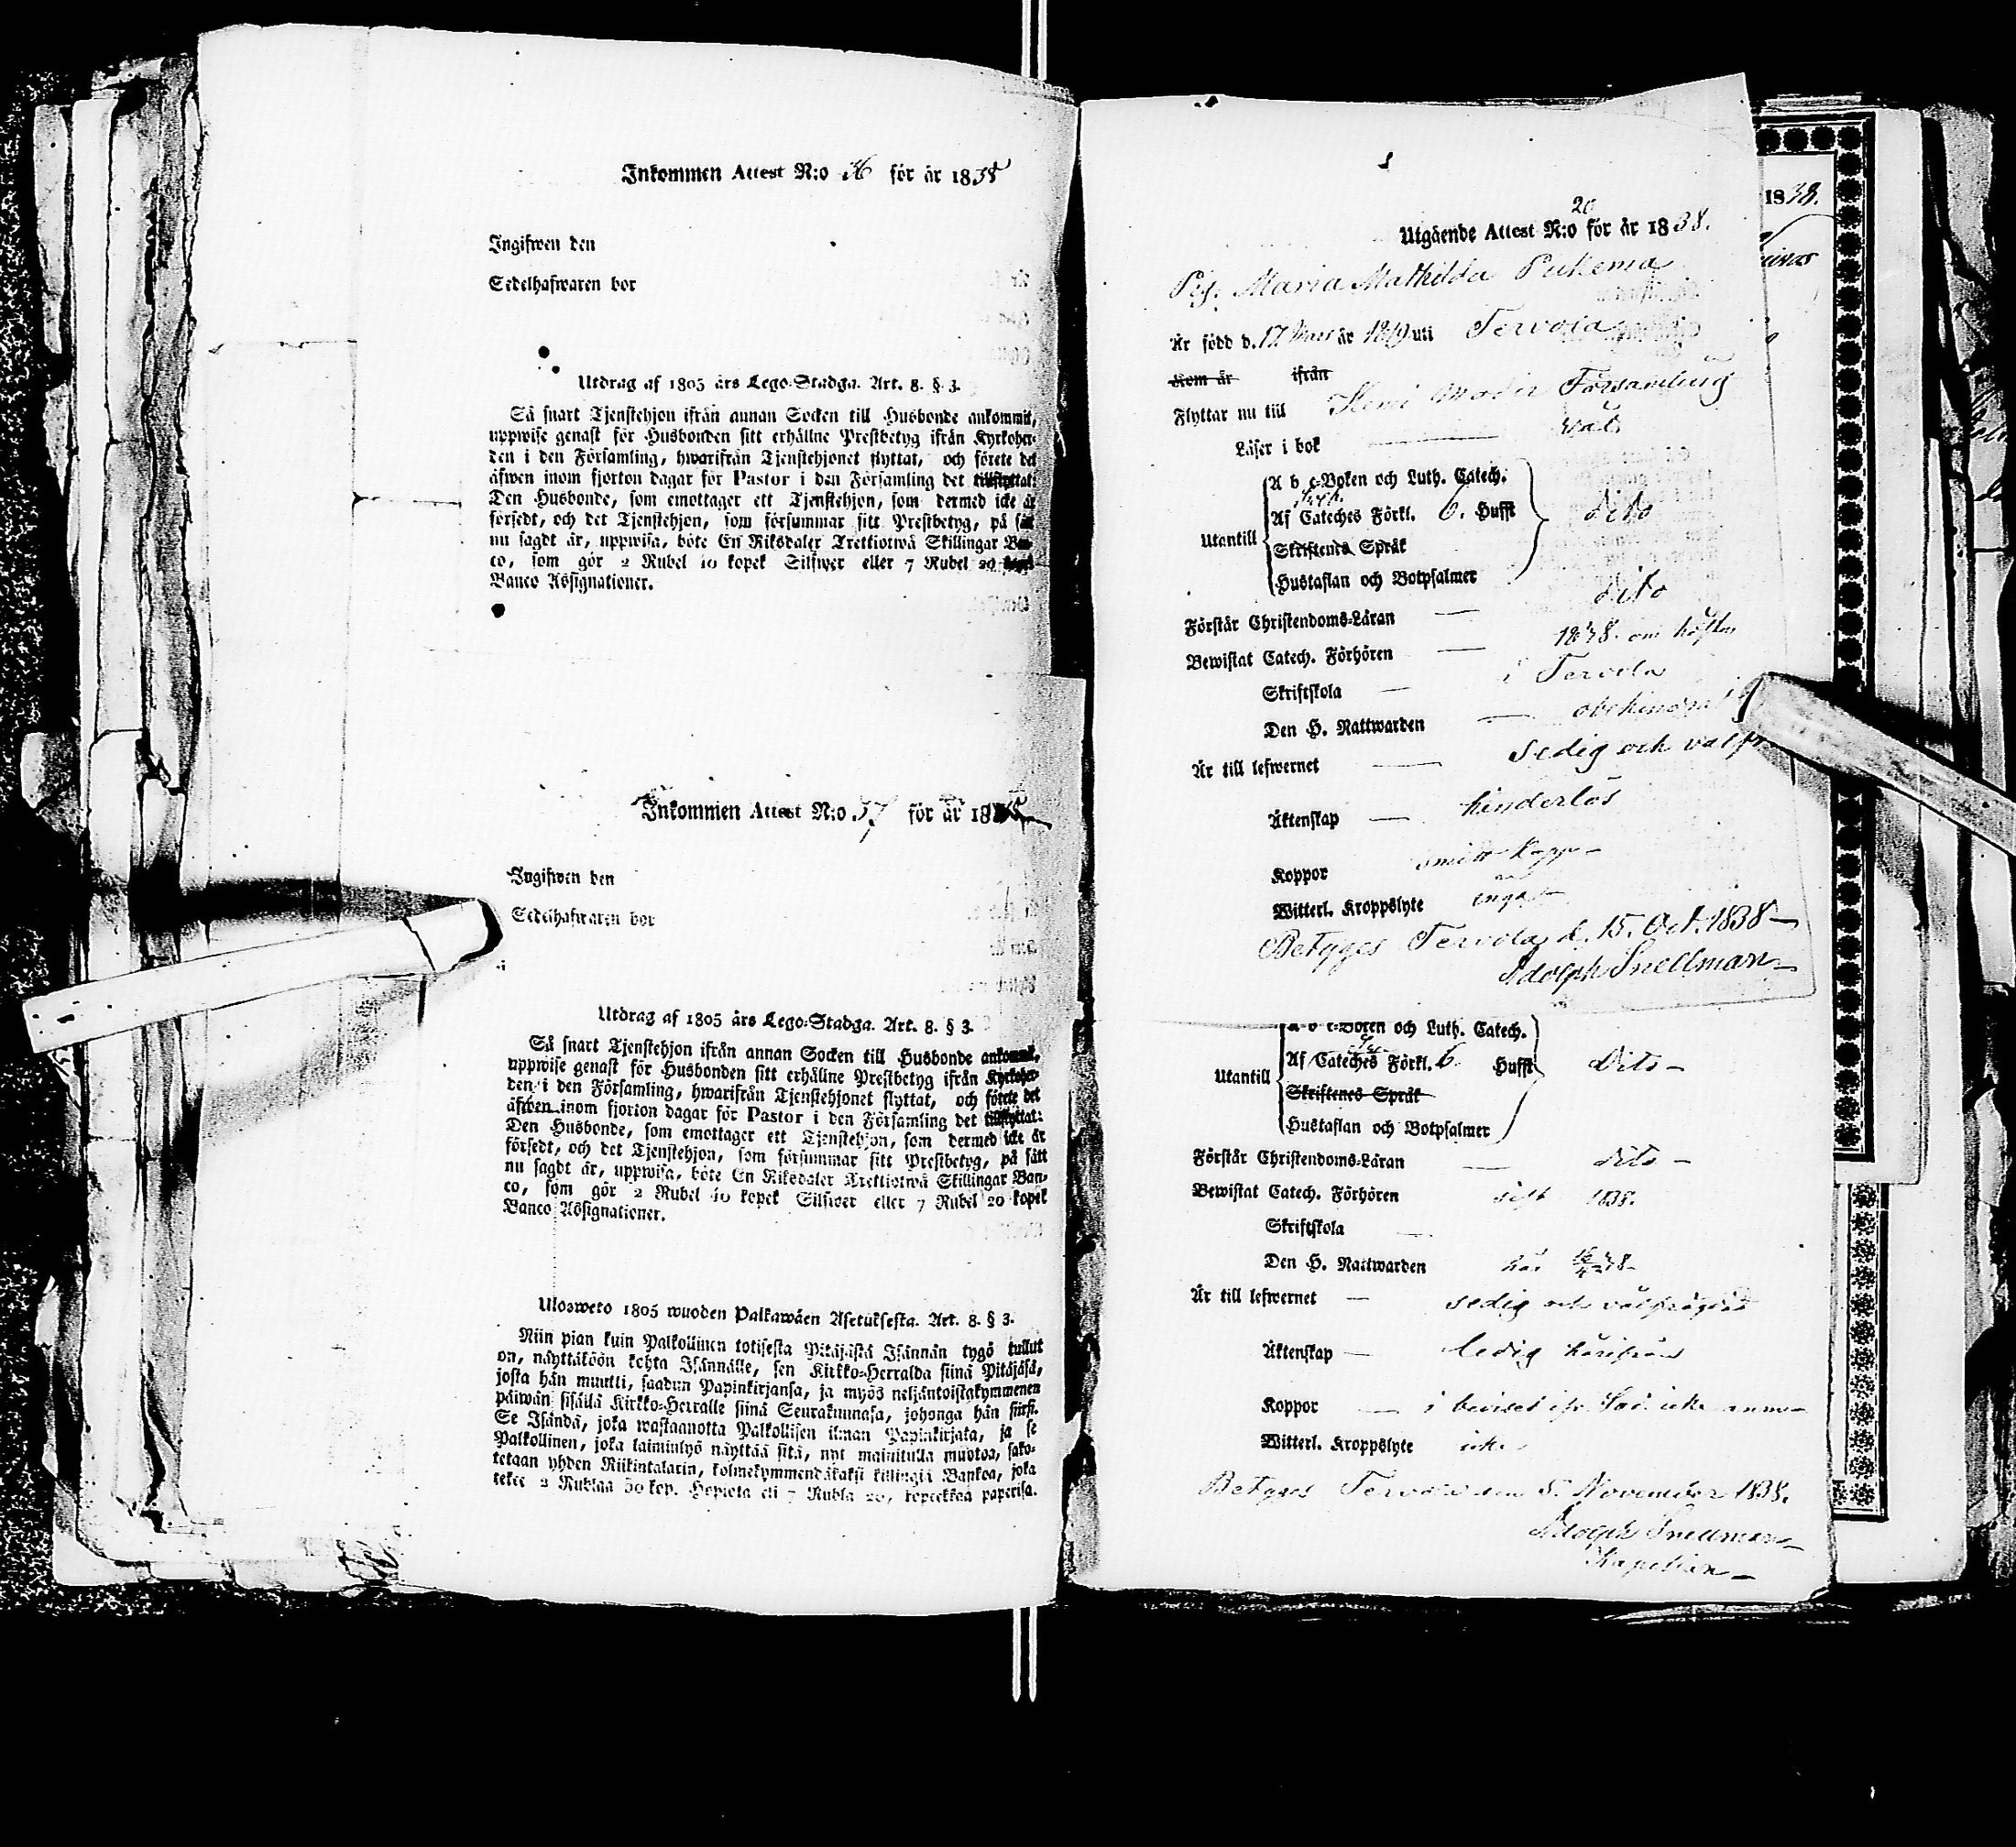 Inkommen Attest N:o 36 för är 1838
Ingifwen den
Sedelhafwaren bor
Utdrag af 1805 års Lego-Stadga. Art. 8. § 3.
Så snart Tjenstehjon ifrån annan Socken till Husbonde ankommit,
uppwise genast för Husbonden sitt erhållne Prestbetyg ifrån Kyrkoher-
den i den Församling, hwarifrån Tjenstehjonet flyttat, och förete det
äfwen inom fjorton dagar för Pastor i den Församling det tillflyttat:
Den Husbonde, som emottager ett Tjenstehjon, som dermed icke är
försedt, och det Tjenstehjon, som försummar sitt Prestbetyg, på sätt
nu sagdt är, uppwisa, böte En Riksdaler Trettiotwå Skillingar Ban-
co, som gör 2 Rubel 10 kopek Silfwer eller 7 Rubel 20 kopek
Banco Assignationer.
Inkommen Attest N:o 37 för är 18
Ingifwen den
Sedelhafwaren bor
Utdrag af 1805 års Lego-Stadga. Art. 8. § 3.
Så snart Tjenstehjon ifrån annan Socken till Husbonde ankommit,
uppwise genast för Husbonden sitt erhållne Prestbetyg ifrån Kyrkoher-
den i den Församling, hwarifrån Tjenstehjonet flyttat, och förete det
äfwen inom fjorton dagar för Pastor i den Församling det tillflyttat:
Den Husbonde, som emottager ett Tjenstehjon, som dermed icke är
försedt, och det Tjenstehjon, som försummar sitt Prestbetyg, på sätt
nu sagdt är, uppwisa, böte En Riksdaler Trettiotwå Skillingar Ban-
co, som gör 2 Rubel 10 kopek Silfwer eller 7 Rubel 20 kopek
Banco Assignationer.
Ulosweto 1805 wuoden Palkawäen Asetuksesta. Art. 8. § 3.
Niin pian kuin Palkollinen toisesta Pitäjästä Isännän tygö tullut
on, näyttäköön kohta Isännälle, sen Kirkko-Herralda siinä Pitäjäsä,
josta hän muutti, saadun Papinkirjansa, ja myös neljäntoistakymmenen
päiwän sisällä Kirkko-Herralle siinä Seurakunnasa, johonga hän siirsi.
Se Isändä, joka wastaanotta Palkollisen ilman Papinkirjata, ja se
Palkollinen, joka laiminlyö näyttää sitä, nyt mainitulla muotoa, sako-
tetaan yhden Riikintalarin, kolmekymmendäkaksi killingiä Bankoa, joka
tekee 2 Rublaa 50 kop. Hopiota eli 7 Rubla 20, kopeekkaa paperisa.
Utgående Attest N:o 20 för år 1838.
Pig. Maria Mathilda Pukema
Är född d. 17 Mars år 1819 uti Tervola
Kom år ifrån
Flyttar nu till Kemi Moder Församling
Läser i bok väl
A b c-Boken och Luth. Catech.
Af Cateches Förkl. 6. Hufft dito
Utantill
Skriftenes Språk
Hustaflan och Botpsalmer
Förstår Christendoms-Läran dito
Bewistat Catech. Förhören 1838. om hösten
Skriftskola i Tervola
Den H. Nattwarden obehindrad
Är till lefwernet sedig och
Äktenskap hinderlös
Koppor
Witterl. Kroppslyte inga
Betyges Tervola d. 15. Oct. 1838
Adolph Snellman
A b c-Boken och Luth. Catech.
Af Cateches Förkl. 6. Hufft Dito
Utantill
Skriftenes Språk
Hustaflan och Botpsalmer
Förstår Christendoms-Läran dito
Bewistat Catech. Förhören sist 1838.
Skriftskola
Den H. Nattwarden här
Är till lefwernet sedig och välfrägdad
Äktenskap ledig härifrån
Koppor i beviset
Witterl. Kroppslyte icke
Betyges Tervola den 5. November 1838.
Adolph Snellman
Kapellan
1838.